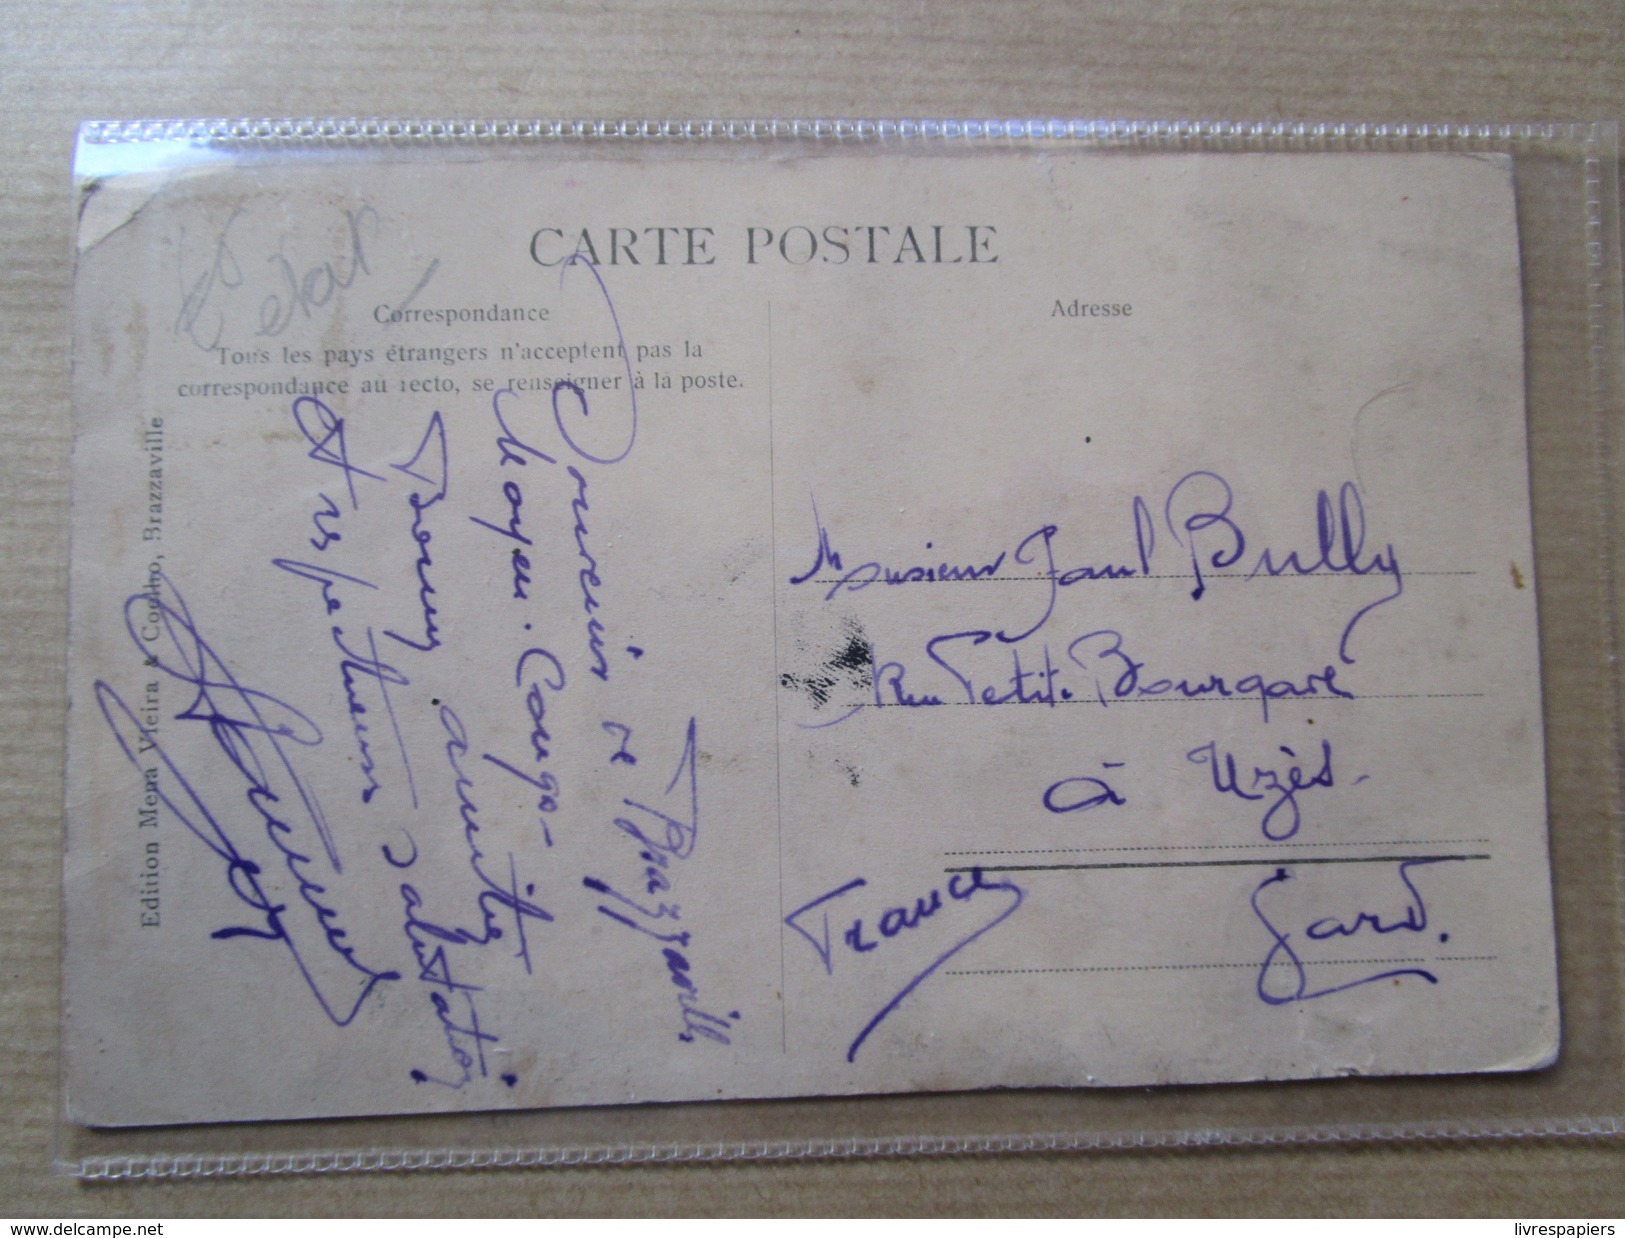 CARTE POSTALE
Correspondance
Tous les pays étrangers n'acceptent pas la
correspondance au recto, se renseigner à la poste.
Adresse
Edition Mena Vieira & Coelho, Brazzaville
Souvenir de Brazzaville
Moyen. Congo -
Bonne amitié
et respectueux salutations
Monsieur Paul Bully
Rue Petit Bourgade
à Uzès.
France Gard.
www.delcampe.net
livrespapiers